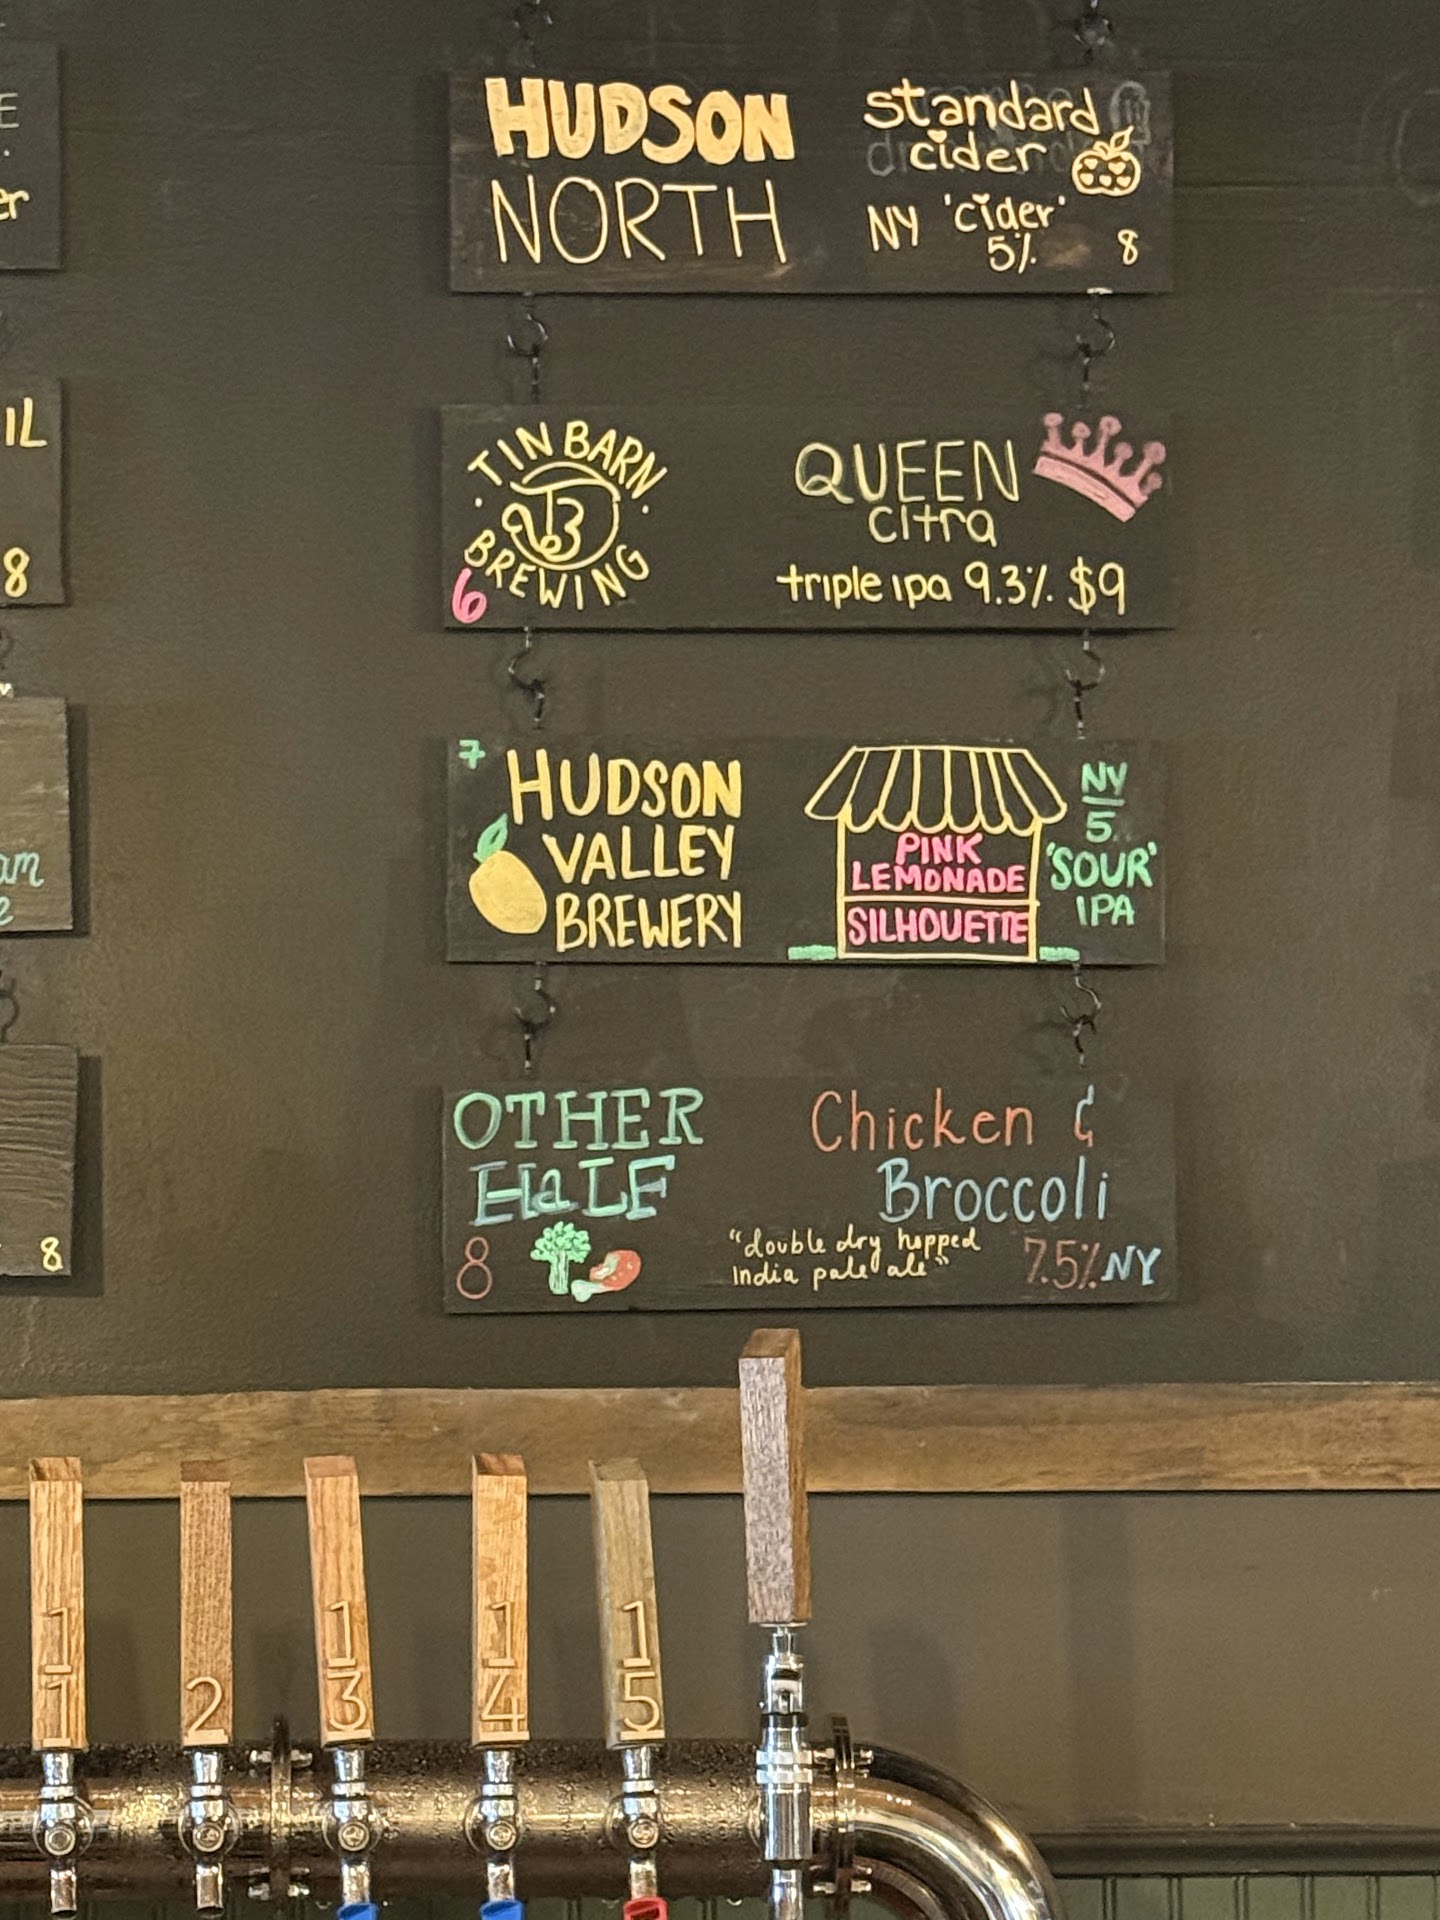 HUDSON
NORTH
standard
cider
NY 'cider'
5% 8
TIN BARN
TB
BREWING
6
QUEEN
citra
triple ipa 9.3% $9
7
HUDSON
VALLEY
BREWERY
PINK
LEMONADE
SILHOUETTE
NY
5
'SOUR'
IPA
OTHER
HaLF
8
Chicken &
Broccoli
"double dry hopped
India pale ale"
7.5% NY
E
er
IL
8
am
8
11
2
13
14
15